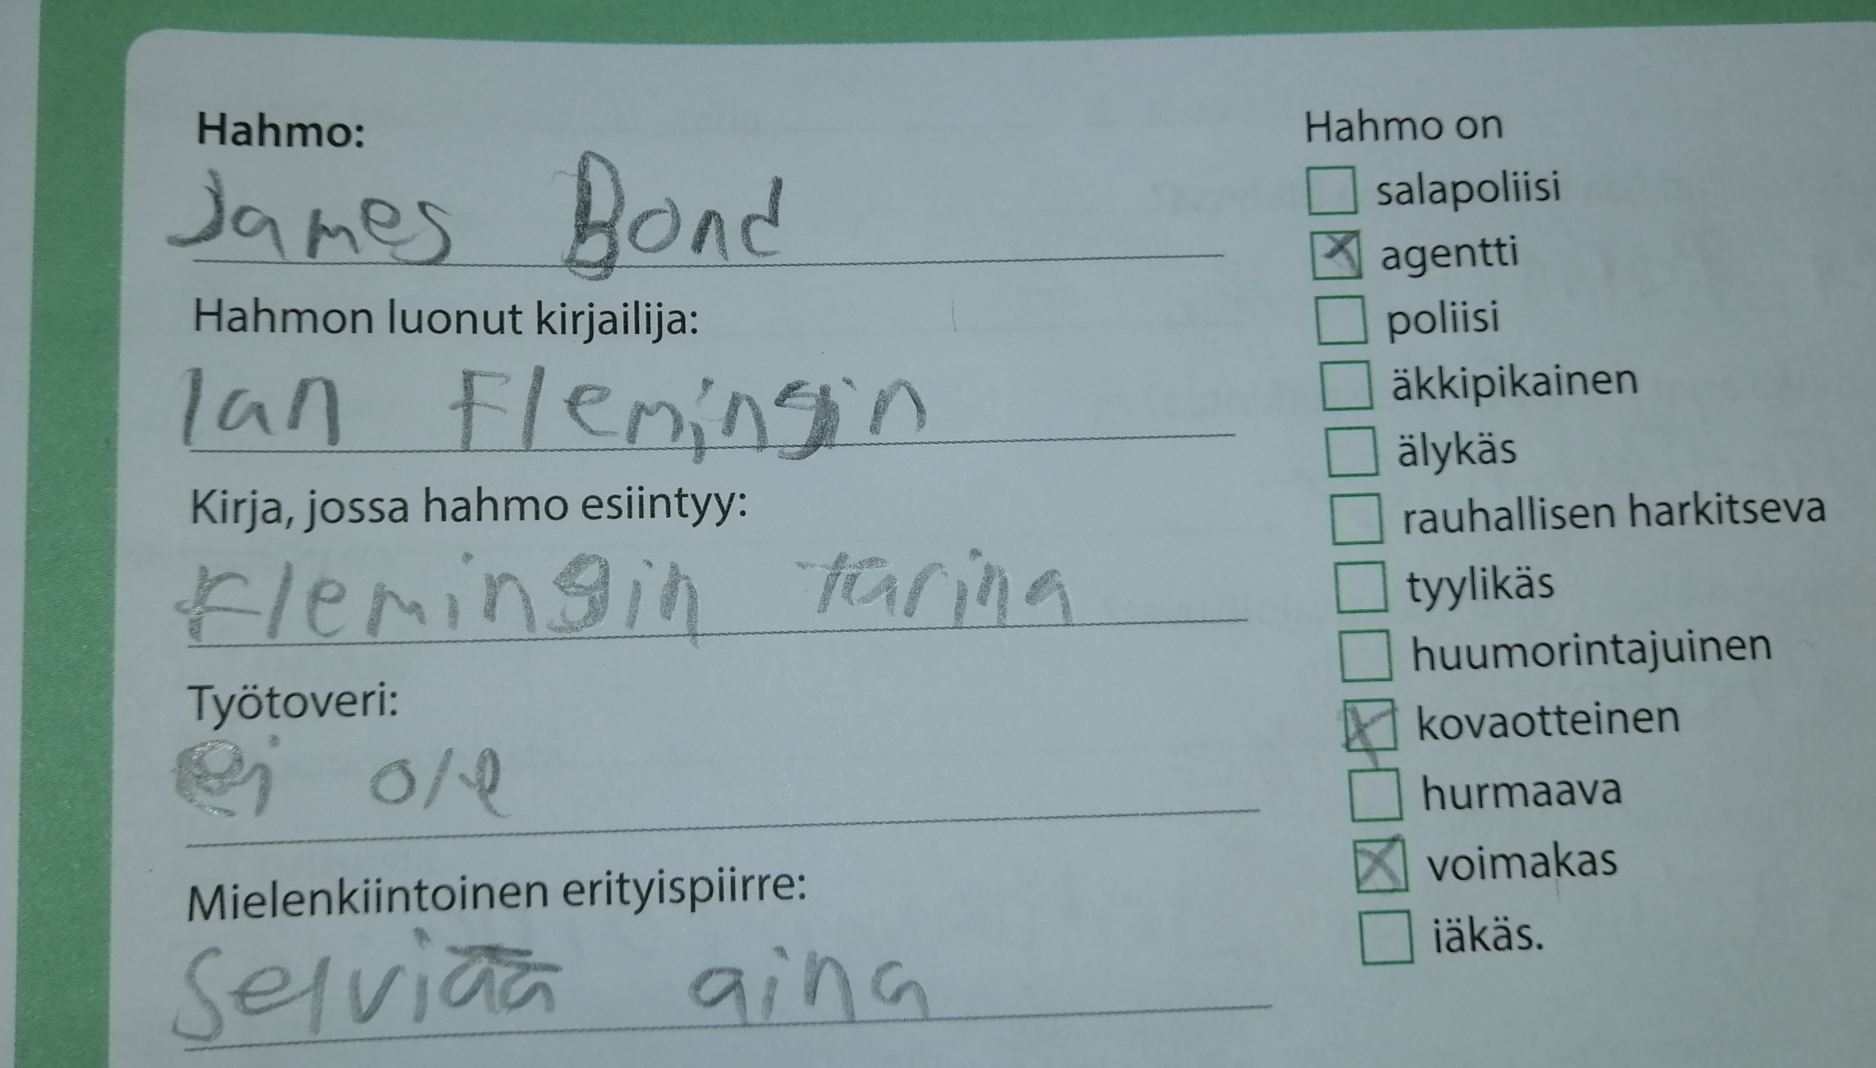 Hahmo:
James Bond
Hahmon luonut kirjailija:
Ian Flemingin
Kirja, jossa hahmo esiintyy:
Flemingin tarina
Työtoveri:
ei ole
Mielenkiintoinen erityispiirre:
Selviää aina
Hahmo on
salapoliisi
agentti
poliisi
äkkipikainen
älykäs
rauhallisen harkitseva
tyylikäs
huumorintajuinen
kovaotteinen
hurmaava
voimakas
iäkäs.